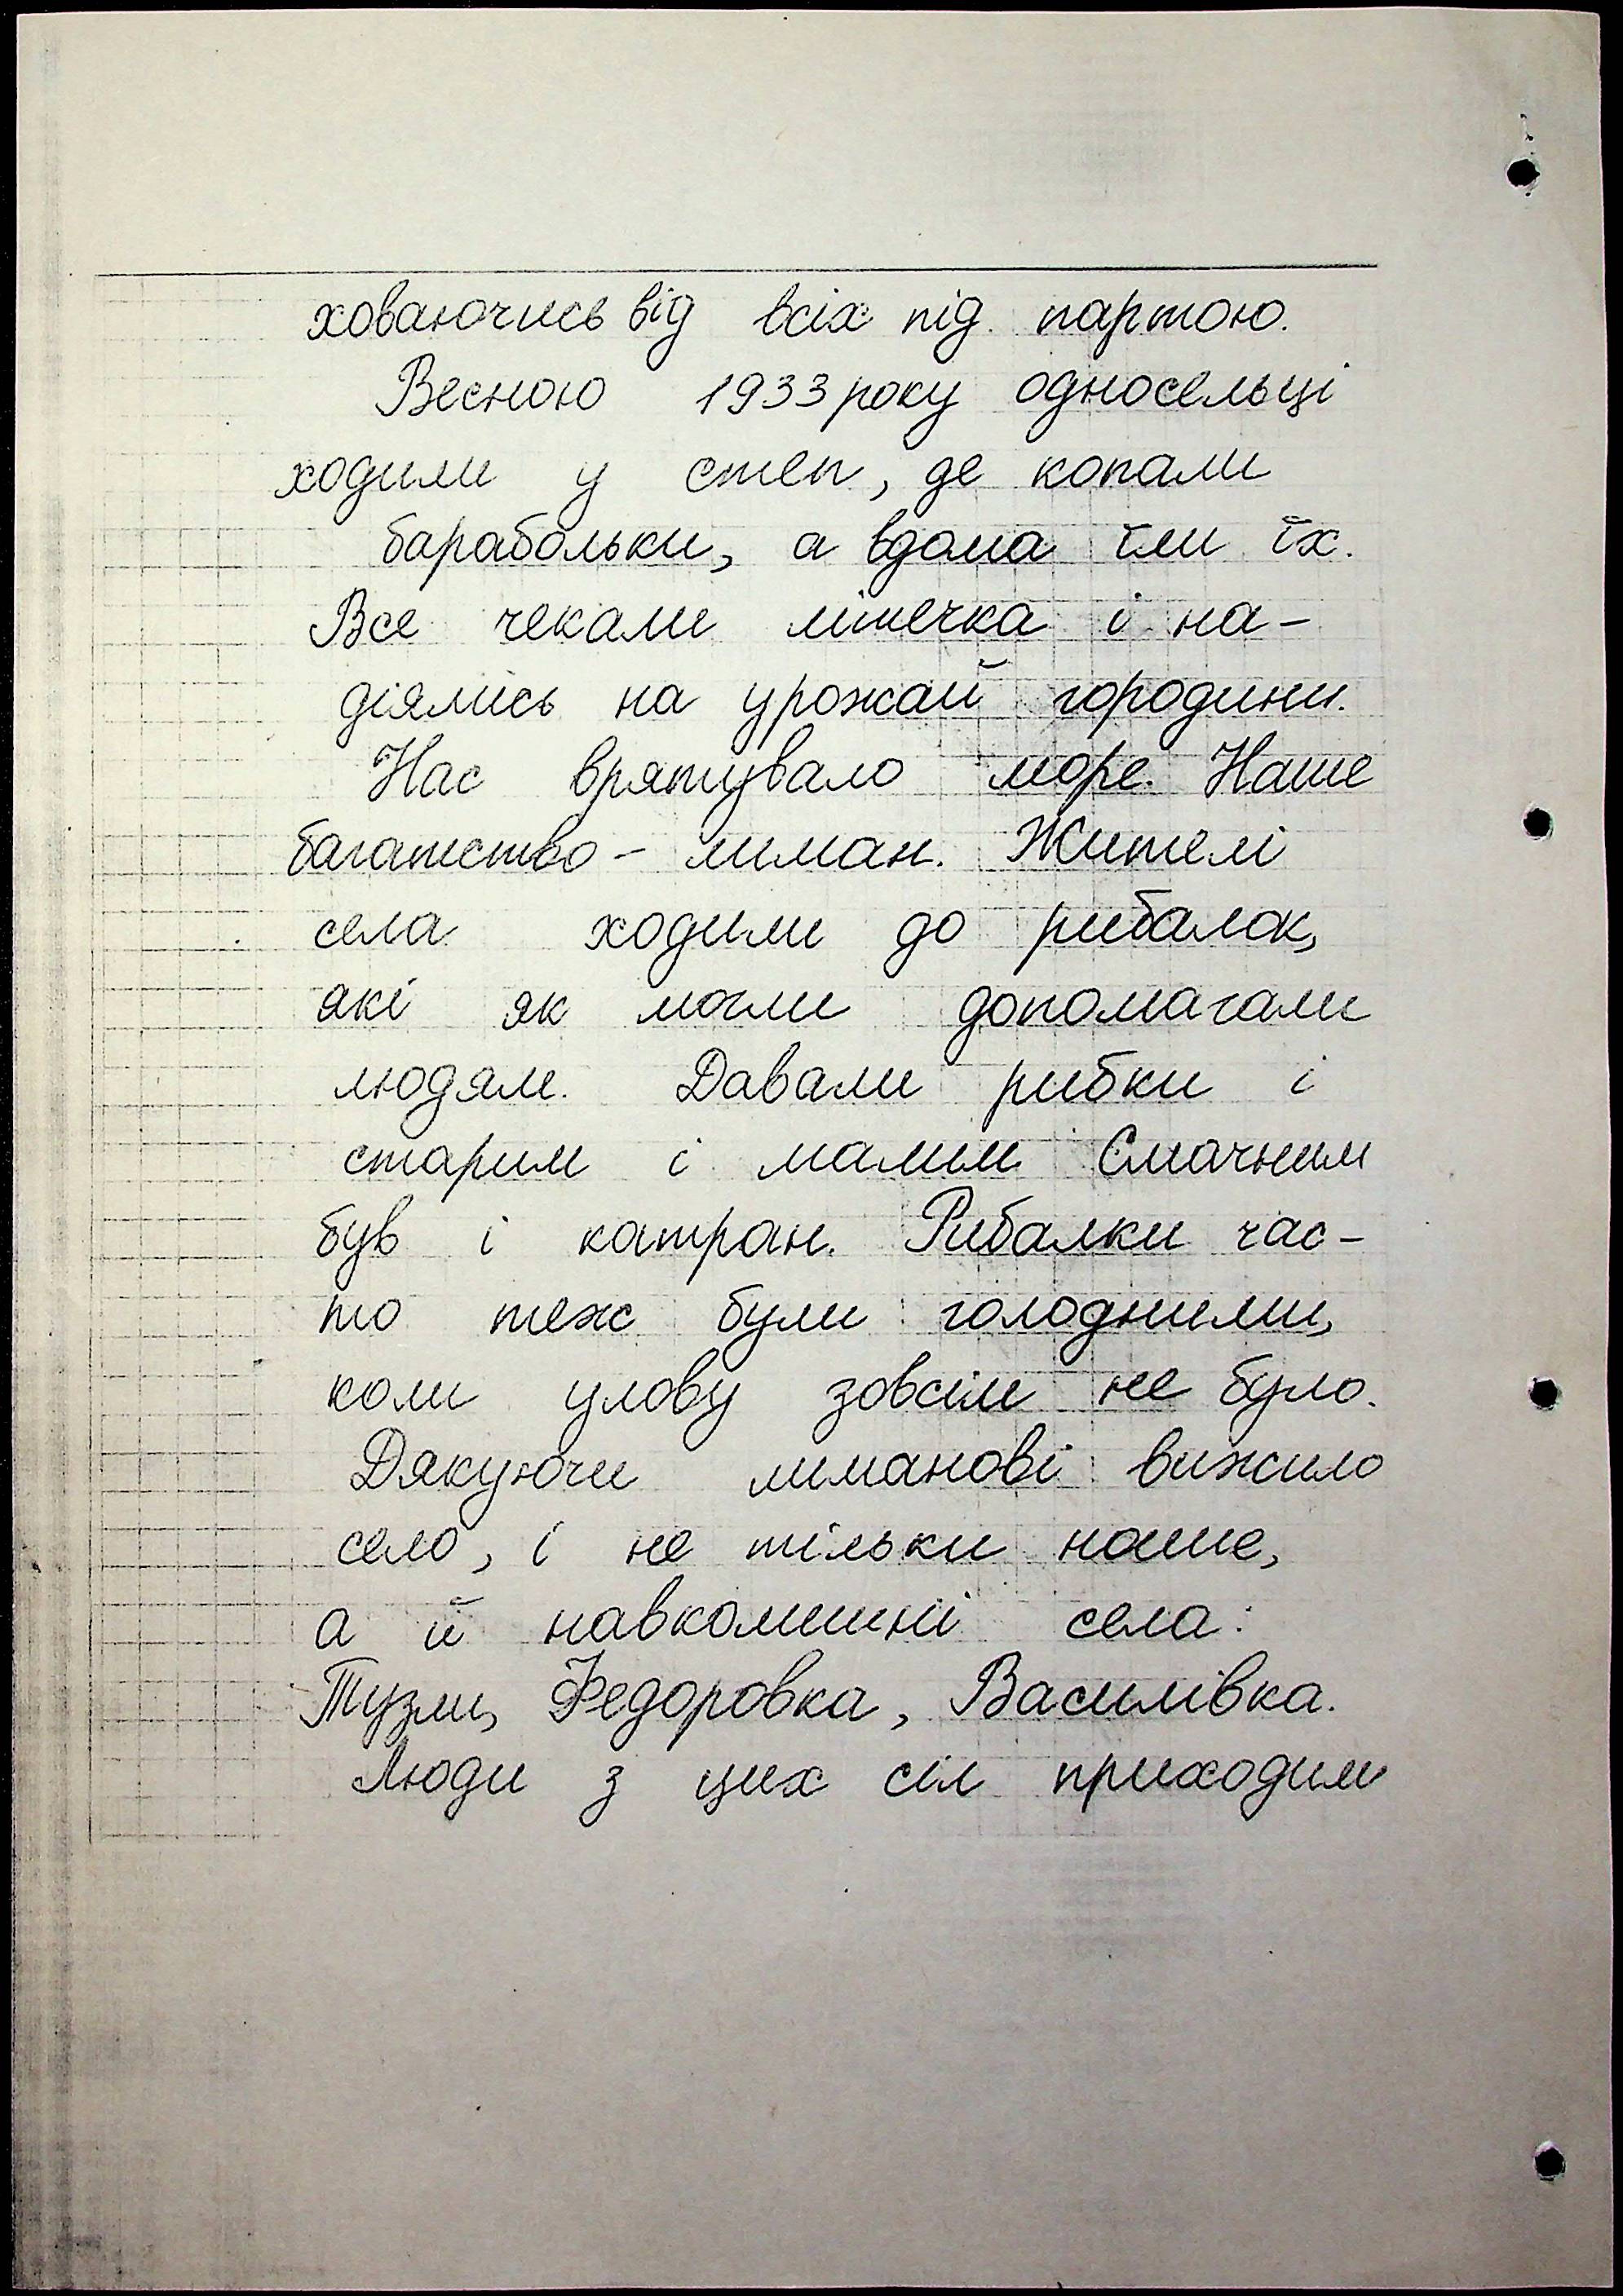 ховаючись від всіх під партою.
Весною 1933 року односельці
ходили у степ, де копали
барабольки, а вдома їли їх.
Все чекали літечка і на-
діялись на урожай городини.
Нас врятувало море. Наше
багатство - лиман. Жителі
села ходили до рибалок,
які як могли допомагали
людям. Давали рибки і
старим і малим. Смачним
був і катран. Рибалки час-
то теж були голодними,
коли улову зовсім не було.
Дякуючи лиманові вижило
село, і не тільки наше,
а й навколишні села:
Тузли, Федоровка, Василівка.
Люди з цих сіл приходили